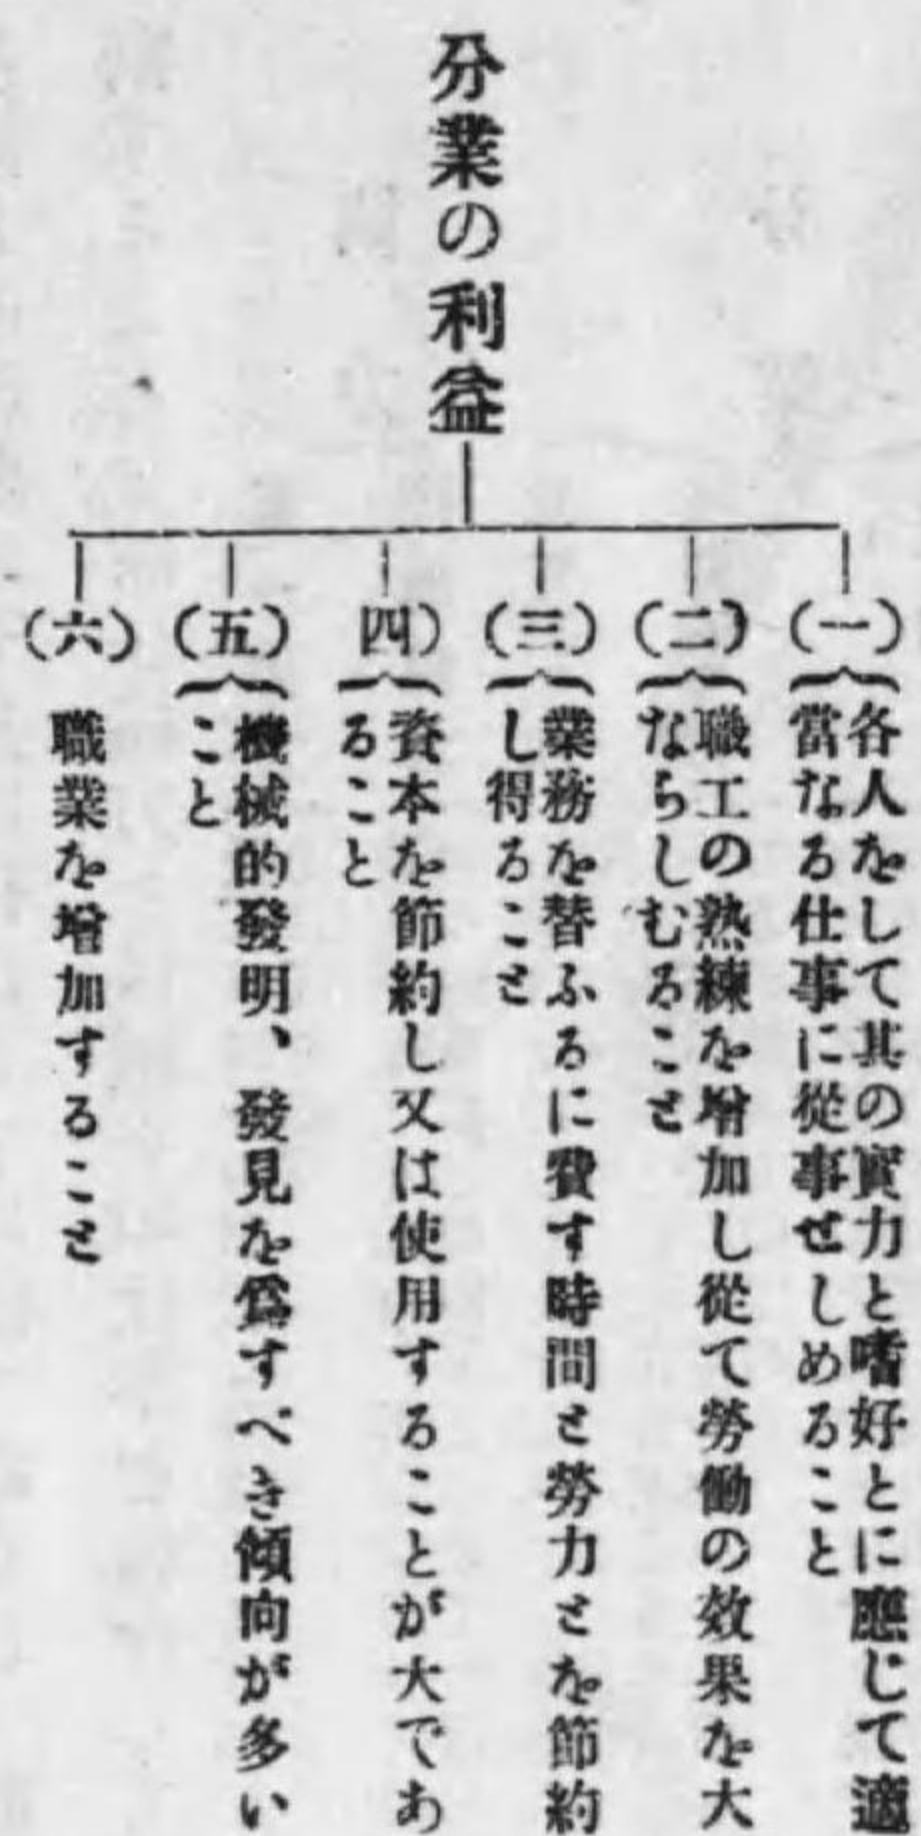 分業の利益
(一)
各人をして其の實力と嗜好とに應じて適
當なる仕事に從事せしめること
(二)
職工の熟練を增加し從て勞働の效果を大
ならしむること
(三)
業務を替ふるに費す時間と勞力とを節約
し得ること
四)
資本を節約し又は使用することが大であ
ること
(五)
機械的發明、發見を爲すべき傾向が多い
こと
(六)
職業を增加すること